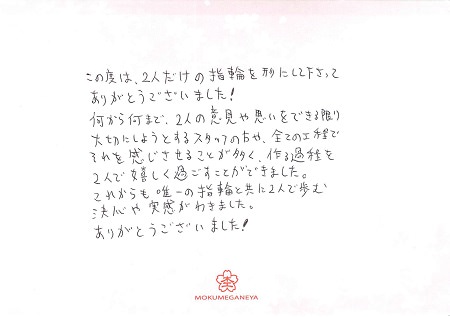 この度は、2人だけの指輪を形にして下さって
ありがとうございました!
何から何まで、2人の意見や思いをできる限り
大切にしようとするスタッフの方や、全ての工程で
それを感じさせることが多く、作る過程を
2人で嬉しく過ごすことができました。
これからも唯一の指輪と共に2人で歩む
決心や実感がわきました。
ありがとうございました!
MOKUMEGANEYA